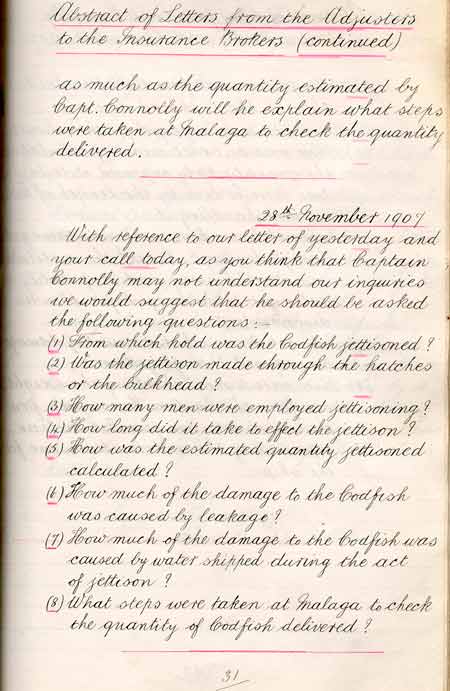 Abstract of Letters from the Adjusters
to the Insurance Brokers (continued)
as much as the quantity estimated by
Capt. Connolly will he explain what steps
were taken at Malaga to check the quantity
delivered.
28th November 1907
With reference to our letter of yesterday and
your call today, as you think that Captain
Connolly may not understand our inquiries
we would suggest that he should be asked
the following questions:-
(1) From which hold was the Codfish jettisoned?
(2) Was the jettison made through the hatches
or the bulkhead?
(3) How many men were employed jettisoning?
(4) How long did it take to effect the jettison?
(5) How was the estimated quantity jettisoned
calculated?
(6) How much of the damage to the Codfish
was caused by leakage?
(7) How much of the damage to the Codfish was
caused by water shipped during the act
of jettison?
(8) What steps were taken at Malaga to check
the quantity of Codfish delivered?
31